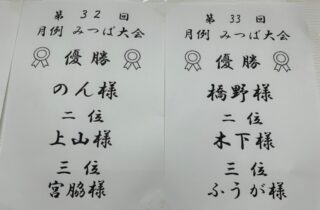 第 32 回
月例 みつば大会
優勝
のん様
二位
上山様
三位
宮脇様
第 33 回
月例 みつば大会
優勝
橋野様
二位
木下様
三位
ふうが様